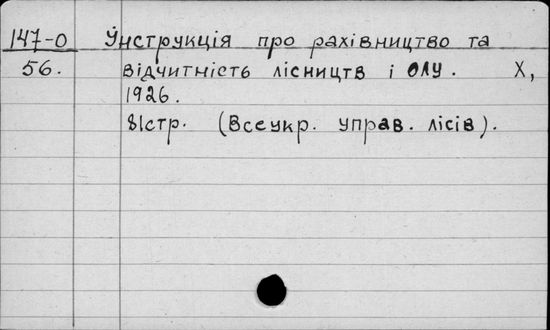 147-0 Інструкція про рахівництво та
56. відчитність лісництв і ОЛУ. Х,
1926.
81стр. (Всеукр. управ. лісів).